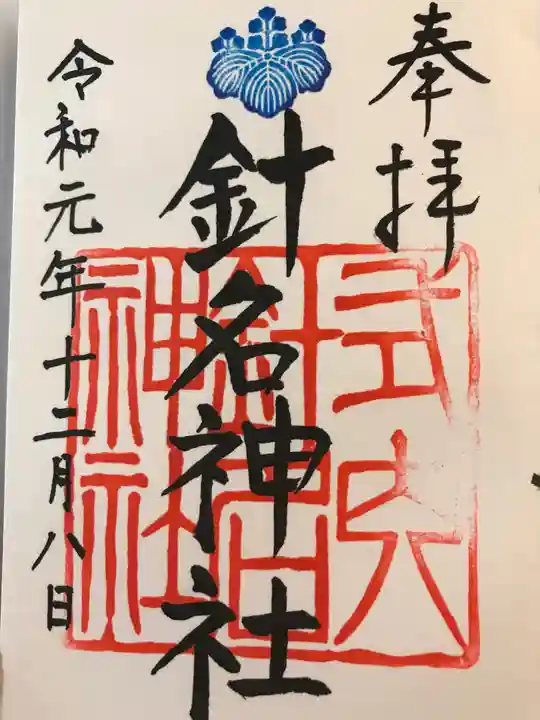 奉拝
式内
針名
神社
針名神社
令和元年十二月八日